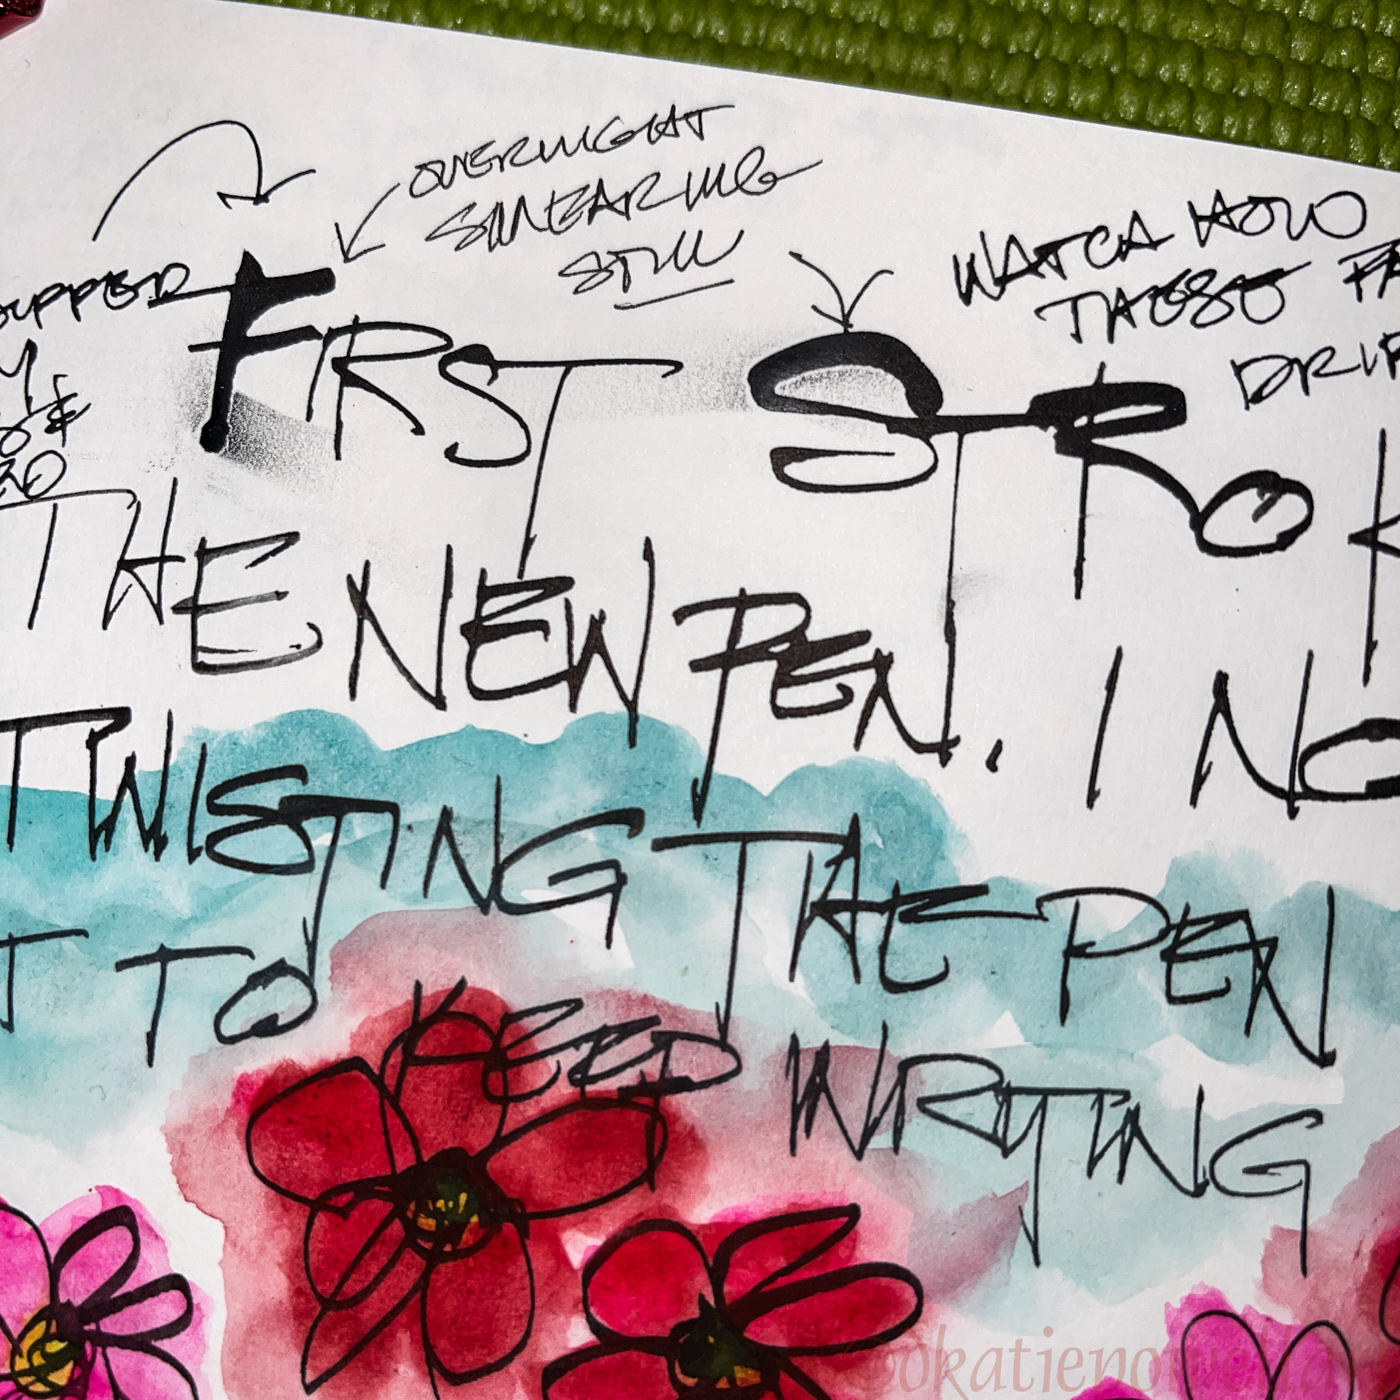 OVERNIGHT
SMEARING
STILL
WATCH HOW
THESE
FIRST STROK
THE NEW PEN. I NO
TWISTING THE PEN
T TO KEEP WRITING